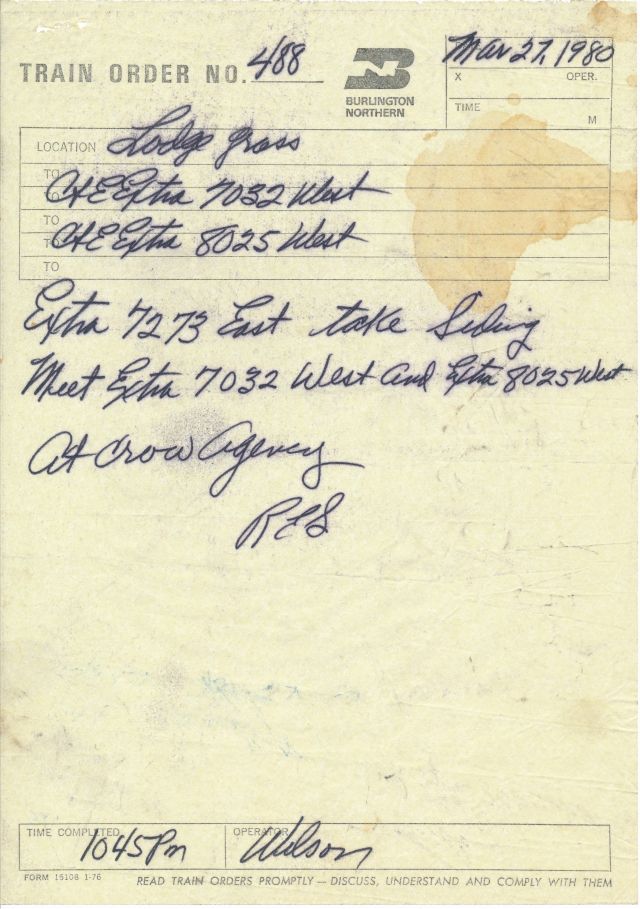 TRAIN ORDER NO. 488
BURLINGTON
NORTHERN
Mar 27, 1980
X OPER.
TIME M
LOCATION Lodge Grass
TO
TO C&E Extra 7032 West
TO
TO C&E Extra 8025 West
TO
Extra 7273 East take Siding
Meet Extra 7032 West and Extra 8025 West
At Crow Agency
RES
TIME COMPLETED 1045 Pm
OPERATOR Wilson
FORM 15108 1-76
READ TRAIN ORDERS PROMPTLY — DISCUSS, UNDERSTAND AND COMPLY WITH THEM